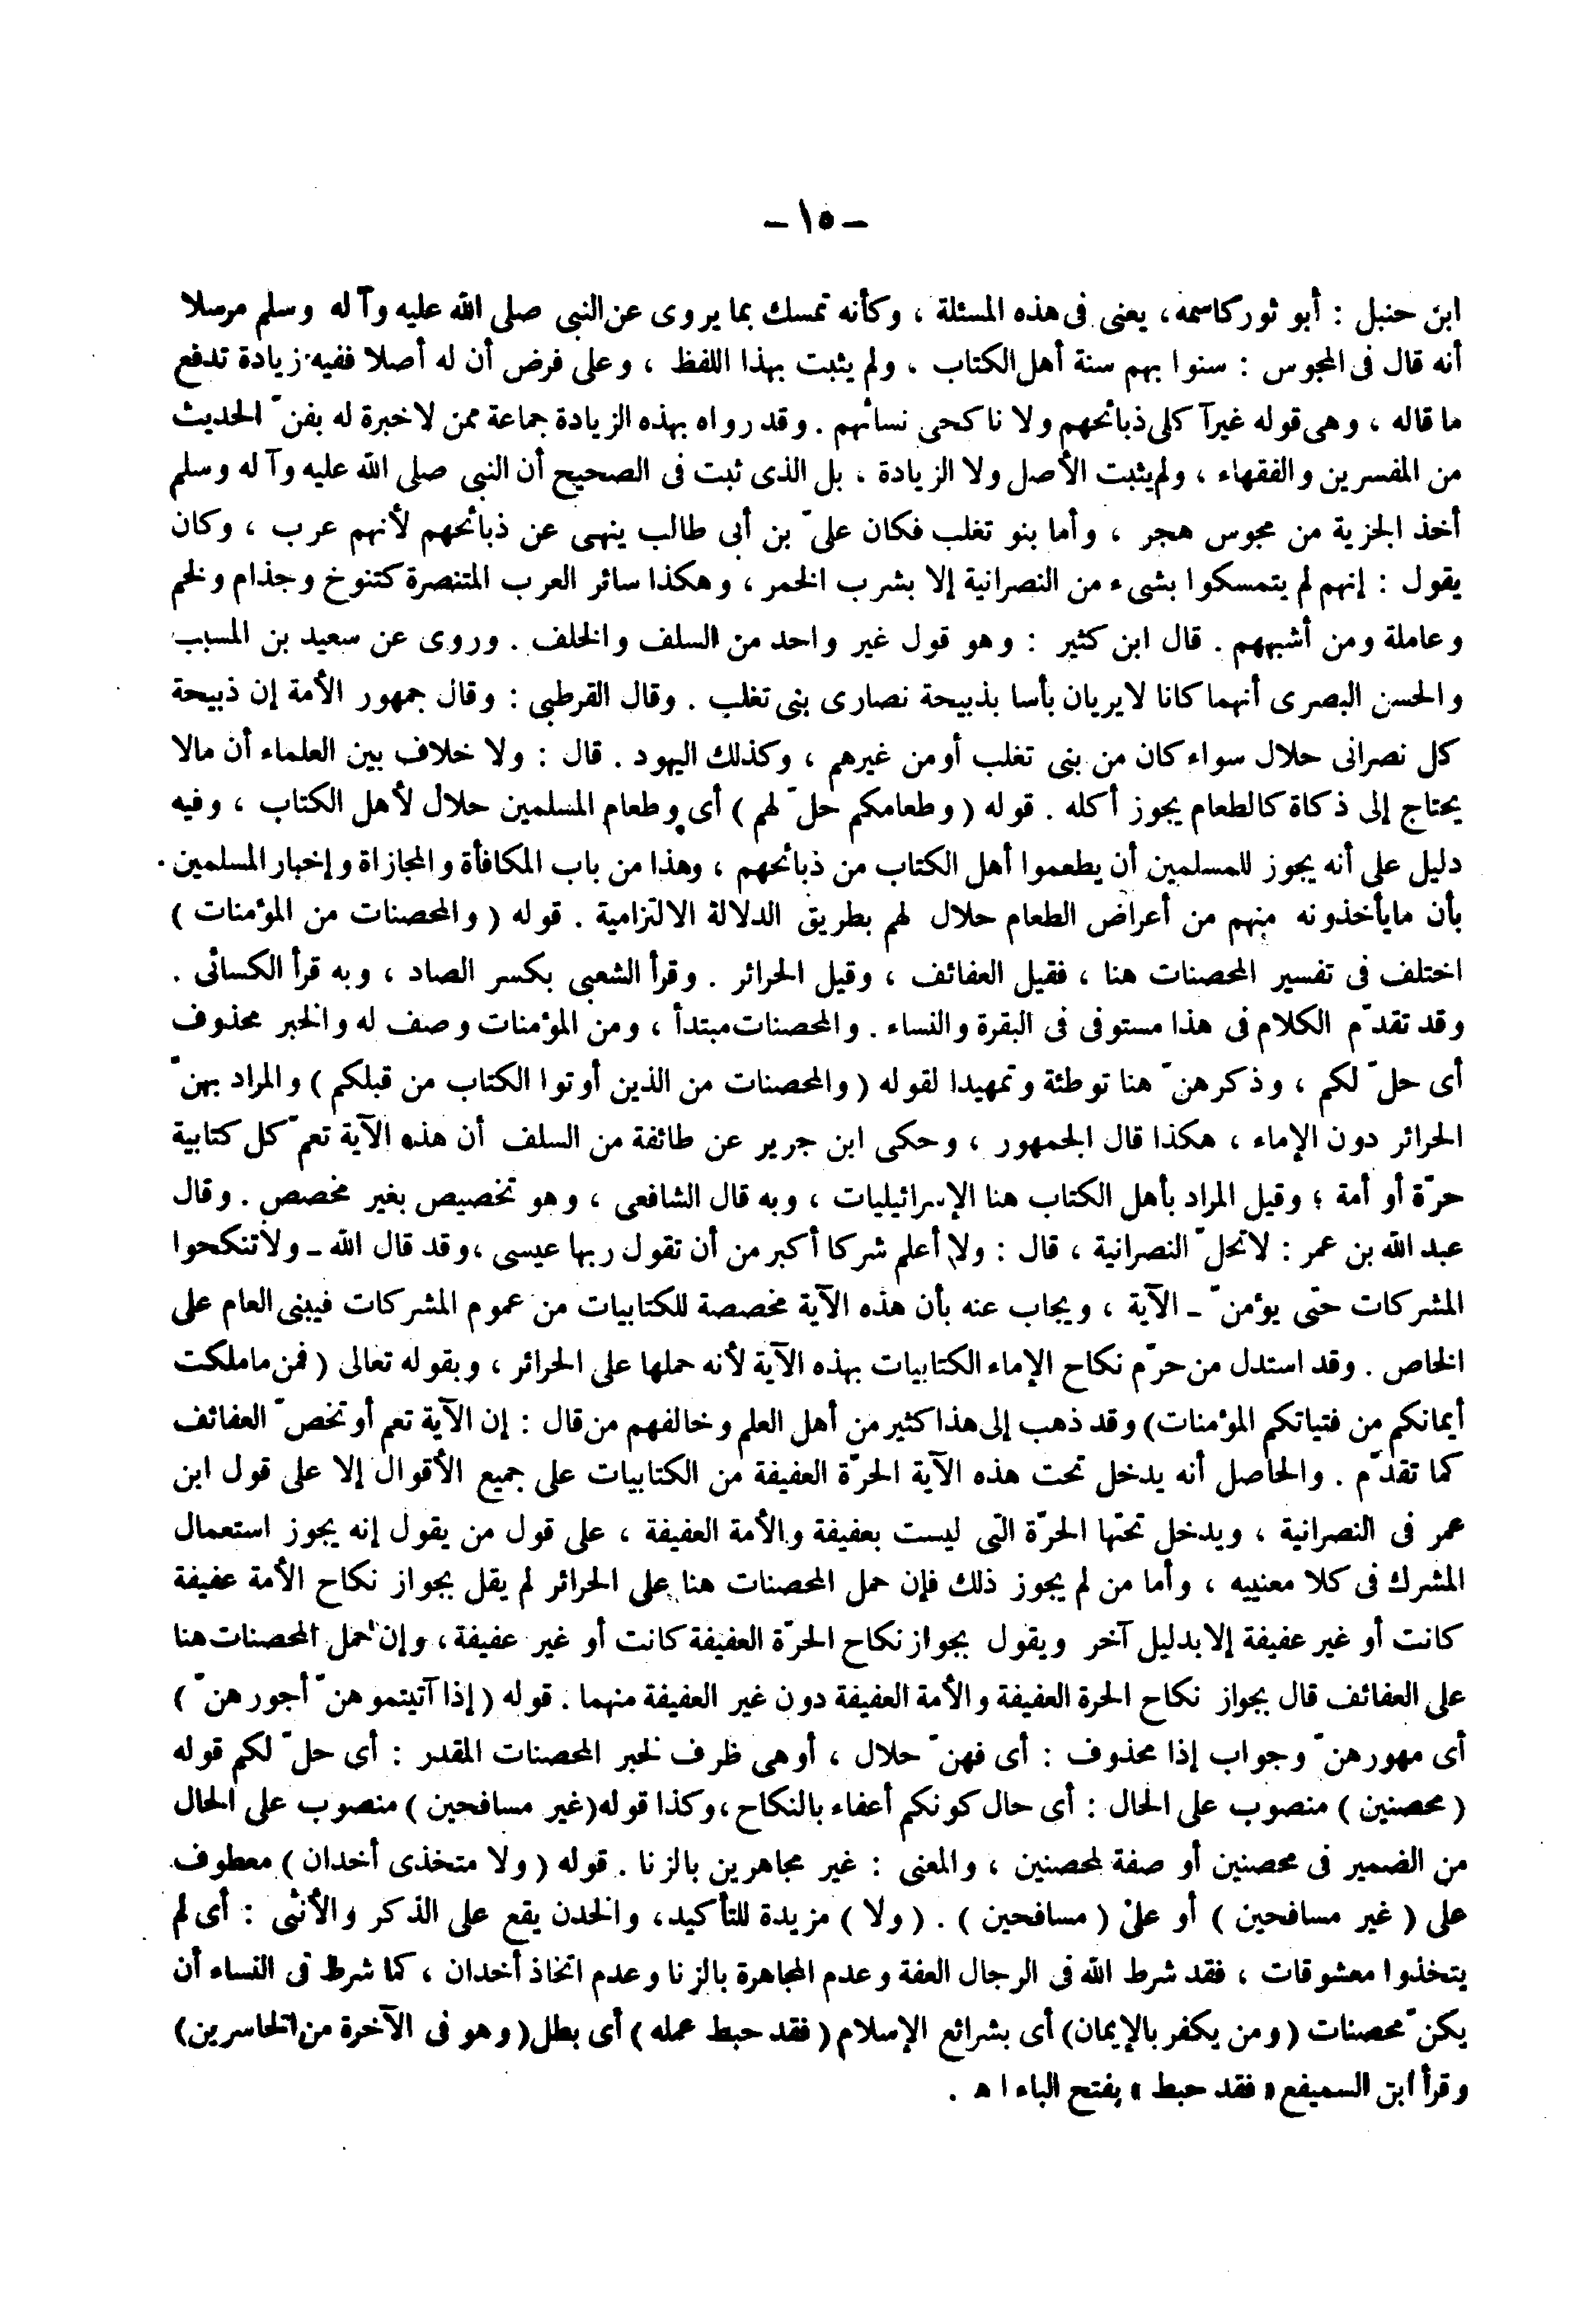 – ١٥ –
ابن حنبل : أبو ثور كاسمه، يعنى فى هذه المسئلة ، وكأنه تمسك بما يروى عن النبى صلى الله عليه وآله وسلم مرسلا
أنه قال فى المجوس : سنوا بهم سنة أهل الكتاب ، ولم يثبت بهذا اللفظ ، وعلى فرض أن له أصلا ففيه زيادة تدفع
ما قاله ، وهى قوله غير آكلى ذبائحهم ولا ناكحى نسائهم . وقد رواه بهذه الزيادة جماعة ممن لاخبرة له بفنّ الحديث
من المفسرين والفقهاء ، ولم يثبت الأصل ولا الزيادة ، بل الذى ثبت فى الصحيح أن النبى صلى الله عليه وآله وسلم
أخذ الجزية من مجوس هجر ، وأما بنو تغلب فكان علىّ بن أبى طالب ينهى عن ذبائحهم لأنهم عرب ، وكان
يقول : إنهم لم يتمسكوا بشىء من النصرانية إلا بشرب الخمر ، وهكذا سائر العرب المتنصرة كتنوخ وجذام ولخم
وعاملة ومن أشبههم . قال ابن كثير : وهو قول غير واحد من السلف والخلف . وروى عن سعيد بن المسبب
والحسن البصرى أنهما كانا لايريان بأسا بذبيحة نصارى بنى تغلب . وقال القرطبى : وقال جمهور الأمة إن ذبيحة
كل نصرانى حلال سواء كان من بنى تغلب أو من غيرهم ، وكذلك اليهود . قال : ولا خلاف بين العلماء أن مالا
يحتاج إلى ذكاة كالطعام يجوز أكله . قوله ( وطعامكم حلّ لهم ) أى وطعام المسلمين حلال لأهل الكتاب ، وفيه
دليل على أنه يجوز للمسلمين أن يطعموا أهل الكتاب من ذبائحهم ، وهذا من باب المكافأة والمجازاة وإخبار المسلمين
بأن مايأخذونه منهم من أعراض الطعام حلال لهم بطريق الدلالة الالتزامية . قوله ( والمحصنات من المؤمنات )
اختلف فى تفسير المحصنات هنا ، فقيل العفائف ، وقيل الحرائر . وقرأ الشعبى بكسر الصاد ، وبه قرأ الكسائى .
وقد تقدّم الكلام فى هذا مستوفى فى البقرة والنساء . والمحصنات مبتدأ ، ومن المؤمنات وصف له والخبر محذوف
أى حلّ لكم ، وذكرهنّ هنا توطئة وتمهيدا لقوله ( والمحصنات من الذين أوتوا الكتاب من قبلكم ) والمراد بهنّ
الحرائر دون الإماء ، هكذا قال الجمهور ، وحكى ابن جرير عن طائفة من السلف أن هذه الآية تعمّ كل كتابية
حرّة أو أمة ؛ وقيل المراد بأهل الكتاب هنا الإسرائيليات ، وبه قال الشافعى ، وهو تخصيص بغير مخصص . وقال
عبد الله بن عمر : لاتحلّ النصرانية ، قال : ولا أعلم شركا أكبر من أن تقول ربها عيسى ، وقد قال الله ـ ولاتنكحوا
المشركات حتى يؤمنّ ـ الآية ، ويجاب عنه بأن هذه الآية مخصصة للكتابيات من عموم المشركات فيبنى العام على
الخاص . وقد استدل من حرّم نكاح الإماء الكتابيات بهذه الآية لأنه حملها على الحرائر ، وبقوله تعالى ( فمن ماملكت
أيمانكم من فتياتكم المؤمنات) وقد ذهب إلى هذا كثير من أهل العلم وخالفهم من قال : إن الآية تعم أو تخصّ العفائف
كما تقدّم . والحاصل أنه يدخل تحت هذه الآية الحرّة العفيفة من الكتابيات على جميع الأقوال إلا على قول ابن
عمر فى النصرانية ، ويدخل تحتها الحرّة التى ليست بعفيفة والأمة العفيفة ، على قول من يقول إنه يجوز استعمال
المشرك فى كلا معنييه ، وأما من لم يجوز ذلك فإن حمل المحصنات هنا على الحرائر لم يقل بجواز نكاح الأمة عفيفة
كانت أو غير عفيفة إلا بدليل آخر ويقول بجواز نكاح الحرّة العفيفة كانت أو غير عفيفة ، وإن حمل المحصنات هنا
على العفائف قال بجواز نكاح الحرة العفيفة والأمة العفيفة دون غير العفيفة منهما . قوله ( إذا آتيتموهنّ أجورهنّ )
أى مهورهنّ وجواب إذا محذوف : أى فهنّ حلال ، أوهى ظرف لخبر المحصنات المقدر : أى حلّ لكم قوله
( محصنين ) منصوب على الحال : أى حال كونكم أعفاء بالنكاح ، وكذا قوله (غير مسافحين ) منصوب على الحال
من الضمير فى محصنين أو صفة لمحصنين ، والمعنى : غير مجاهرين بالزنا . قوله ( ولا متخذى أخدان ) معطوف
على ( غير مسافحين ) أو على ( مسافحين ) . ( ولا ) مزيدة للتأكيد ، والخدن يقع على الذكر والأنثى : أى لم
يتخذوا معشوقات ، فقد شرط الله فى الرجال العفة وعدم المجاهرة بالزنا وعدم اتخاذ أخدان ، كما شرط فى النساء أن
يكنّ محصنات ( ومن يكفر بالإيمان) أى بشرائع الإسلام ( فقد حبط عمله ) أى بطل ( وهو فى الآخرة من الخاسرين)
وقرأ ابن السميفع « فقد حبط » بفتح الباء ا ه .